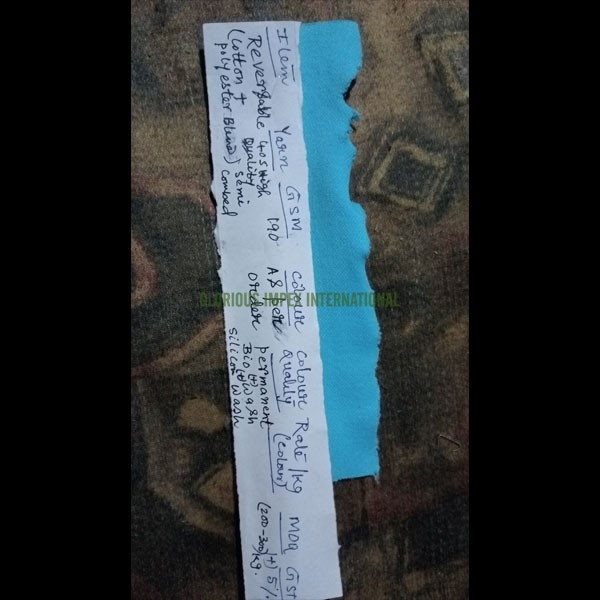 Item Yarn GSM colour colour Rate/kg MOQ GST
Quality (colour)
Reversable 40s High 190 As per permanent (200-300)kg. (+) 5%
(Cotton + Quality order Bio(+)wash
polyester Blend) Semi silicon(+)wash
combed
GLORIOUS IMPEX INTERNATIONAL